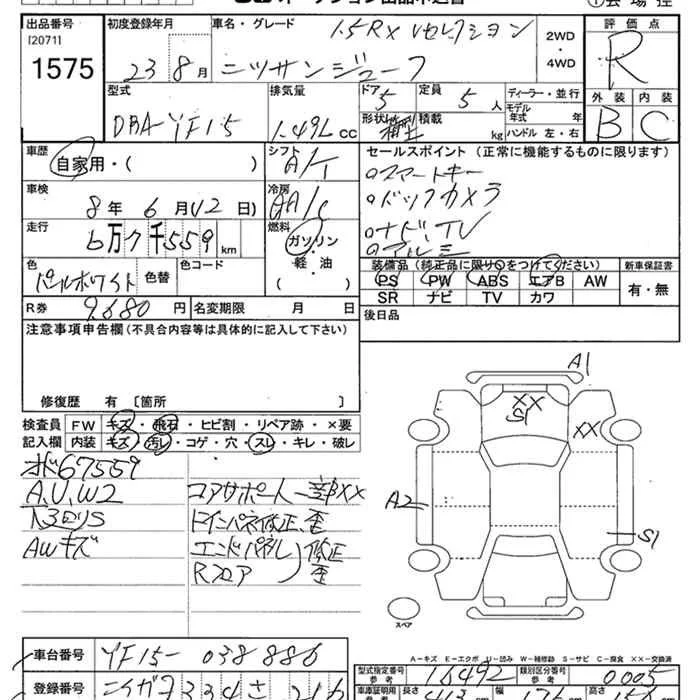 出品番号 初度登録年月 車名・グレード 1.5RX Vセレクション 評価点
[2071]
1575 23年8月 ニッサンジューク 2WD・4WD R
型式 排気量 ドア 5 定員 5人 ディーラー・並行 外装 内装
DBA-YF15 1.49L cc 形状 積載 kg モデル年式 年 ハンドル 左・右 B C
車歴 シフト セールスポイント (正常に機能するものに限ります)
自家用・( ) A/T ○スマートキー
車検 冷房 ○バックカメラ
8年6月(12日) AA/C ○ナビ、TV
走行 燃料 ○アルミ
6万7千559km ガソリン・軽・油 ( )
装備品 (純正品に限り○をつけてください) 新車保証書
色 パールホワイト 色替 色コード PS PW ABS エアB AW 有・無
SR ナビ TV カワ
R券 9,680円 名変期限 月 日 後日品
注意事項申告欄 (不具合内容等は具体的に記入して下さい)
修復歴 有 [箇所 ]
検査員 FW キズ・飛石・ヒビ割・リペア跡・×要
記入欄 内装 キズ・汚レ・コゲ・穴・スレ・キレ・破レ
オド67559
A.U.W2 コアサポート一部XX
下回りS ドインパネ修正、歪
AWキズ エンドパネル 修正
Rフロア 歪
A1
XX
S1
XX
A2
S1
スペア
A−キズ E−エクボ U−凹み W−補修跡 S−サビ C−腐食 XX−交換済
車台番号 YF15-038886 型式指定番号 参考 16492 類別区分番号 参考 0005
登録番号 ニイガタ334さ 車庫証明用 長さ 413 幅 176 高さ